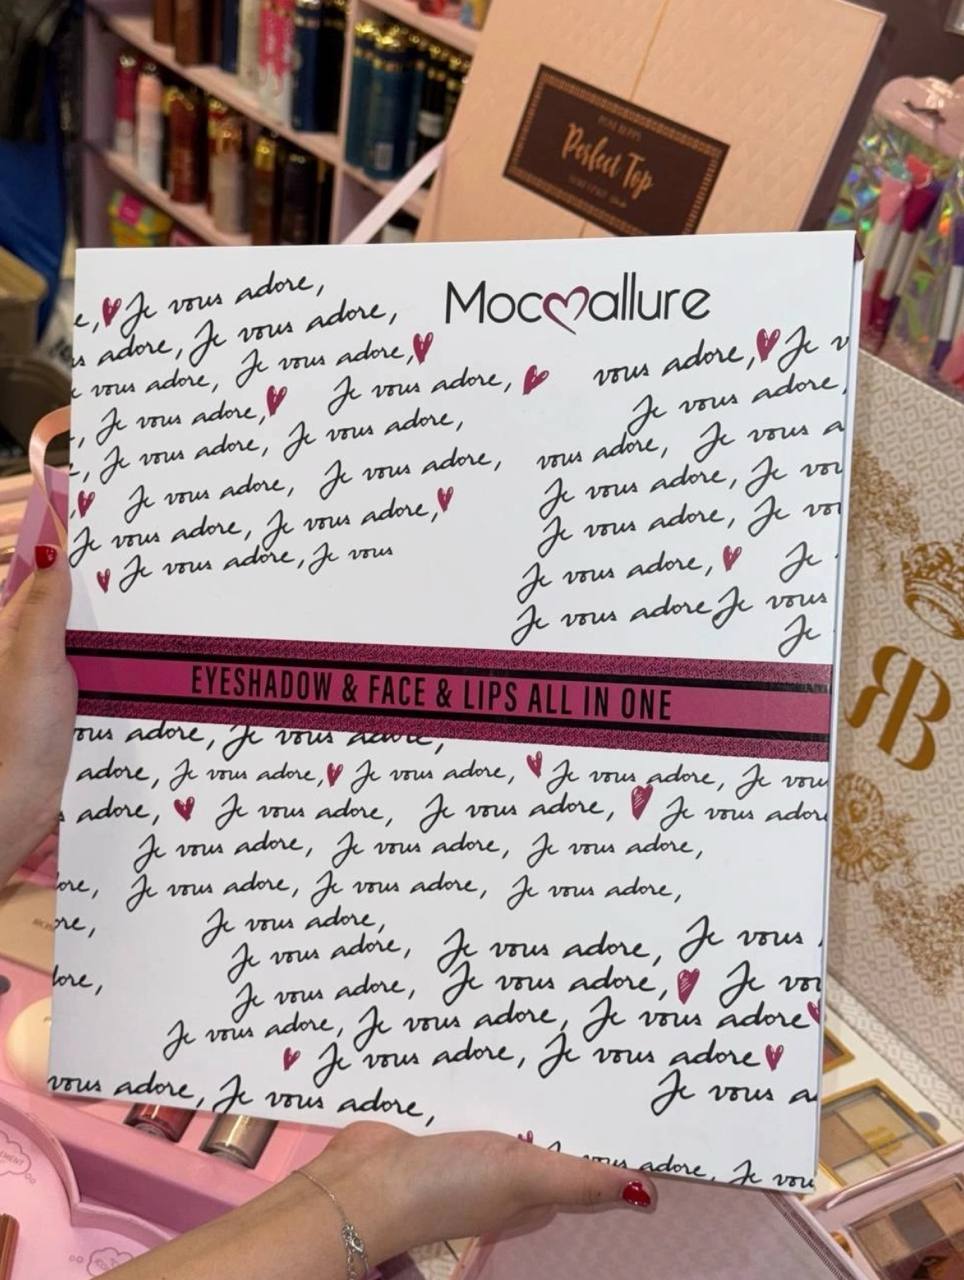 Perfect Top
Mocallure
e, Je vous adore,
s adore, Je vous adore,
vous adore, Je vous adore,
Je vous adore, Je vous adore,
vous adore, Je v
Je vous adore,
Je vous adore, Je vous adore,
vous adore, Je vous a
Je vous adore, Je vous adore,
Je vous adore, Je vou
Je vous adore, Je vous adore,
Je vous adore, Je vou
Je vous adore, Je vous
Je vous adore, Je
Je vous adore Je vous
Je
EYESHADOW & FACE & LIPS ALL IN ONE
BB
ous adore, Je vous adore,
adore, Je vous adore, Je vous adore, Je vous adore, Je vou
adore, Je vous adore, Je vous adore, Je vous ador
Je vous adore, Je vous adore, Je vous adore,
ore, Je vous adore, Je vous adore, Je vous adore,
re, Je vous adore,
Je vous adore, Je vous adore, Je vous
lore, Je vous adore, Je vous adore, Je vou
Je vous adore, Je vous adore, Je vous adore
Je vous adore, Je vous adore
Je vous a
vous adore, Je vous adore,
vous adore, Je vou